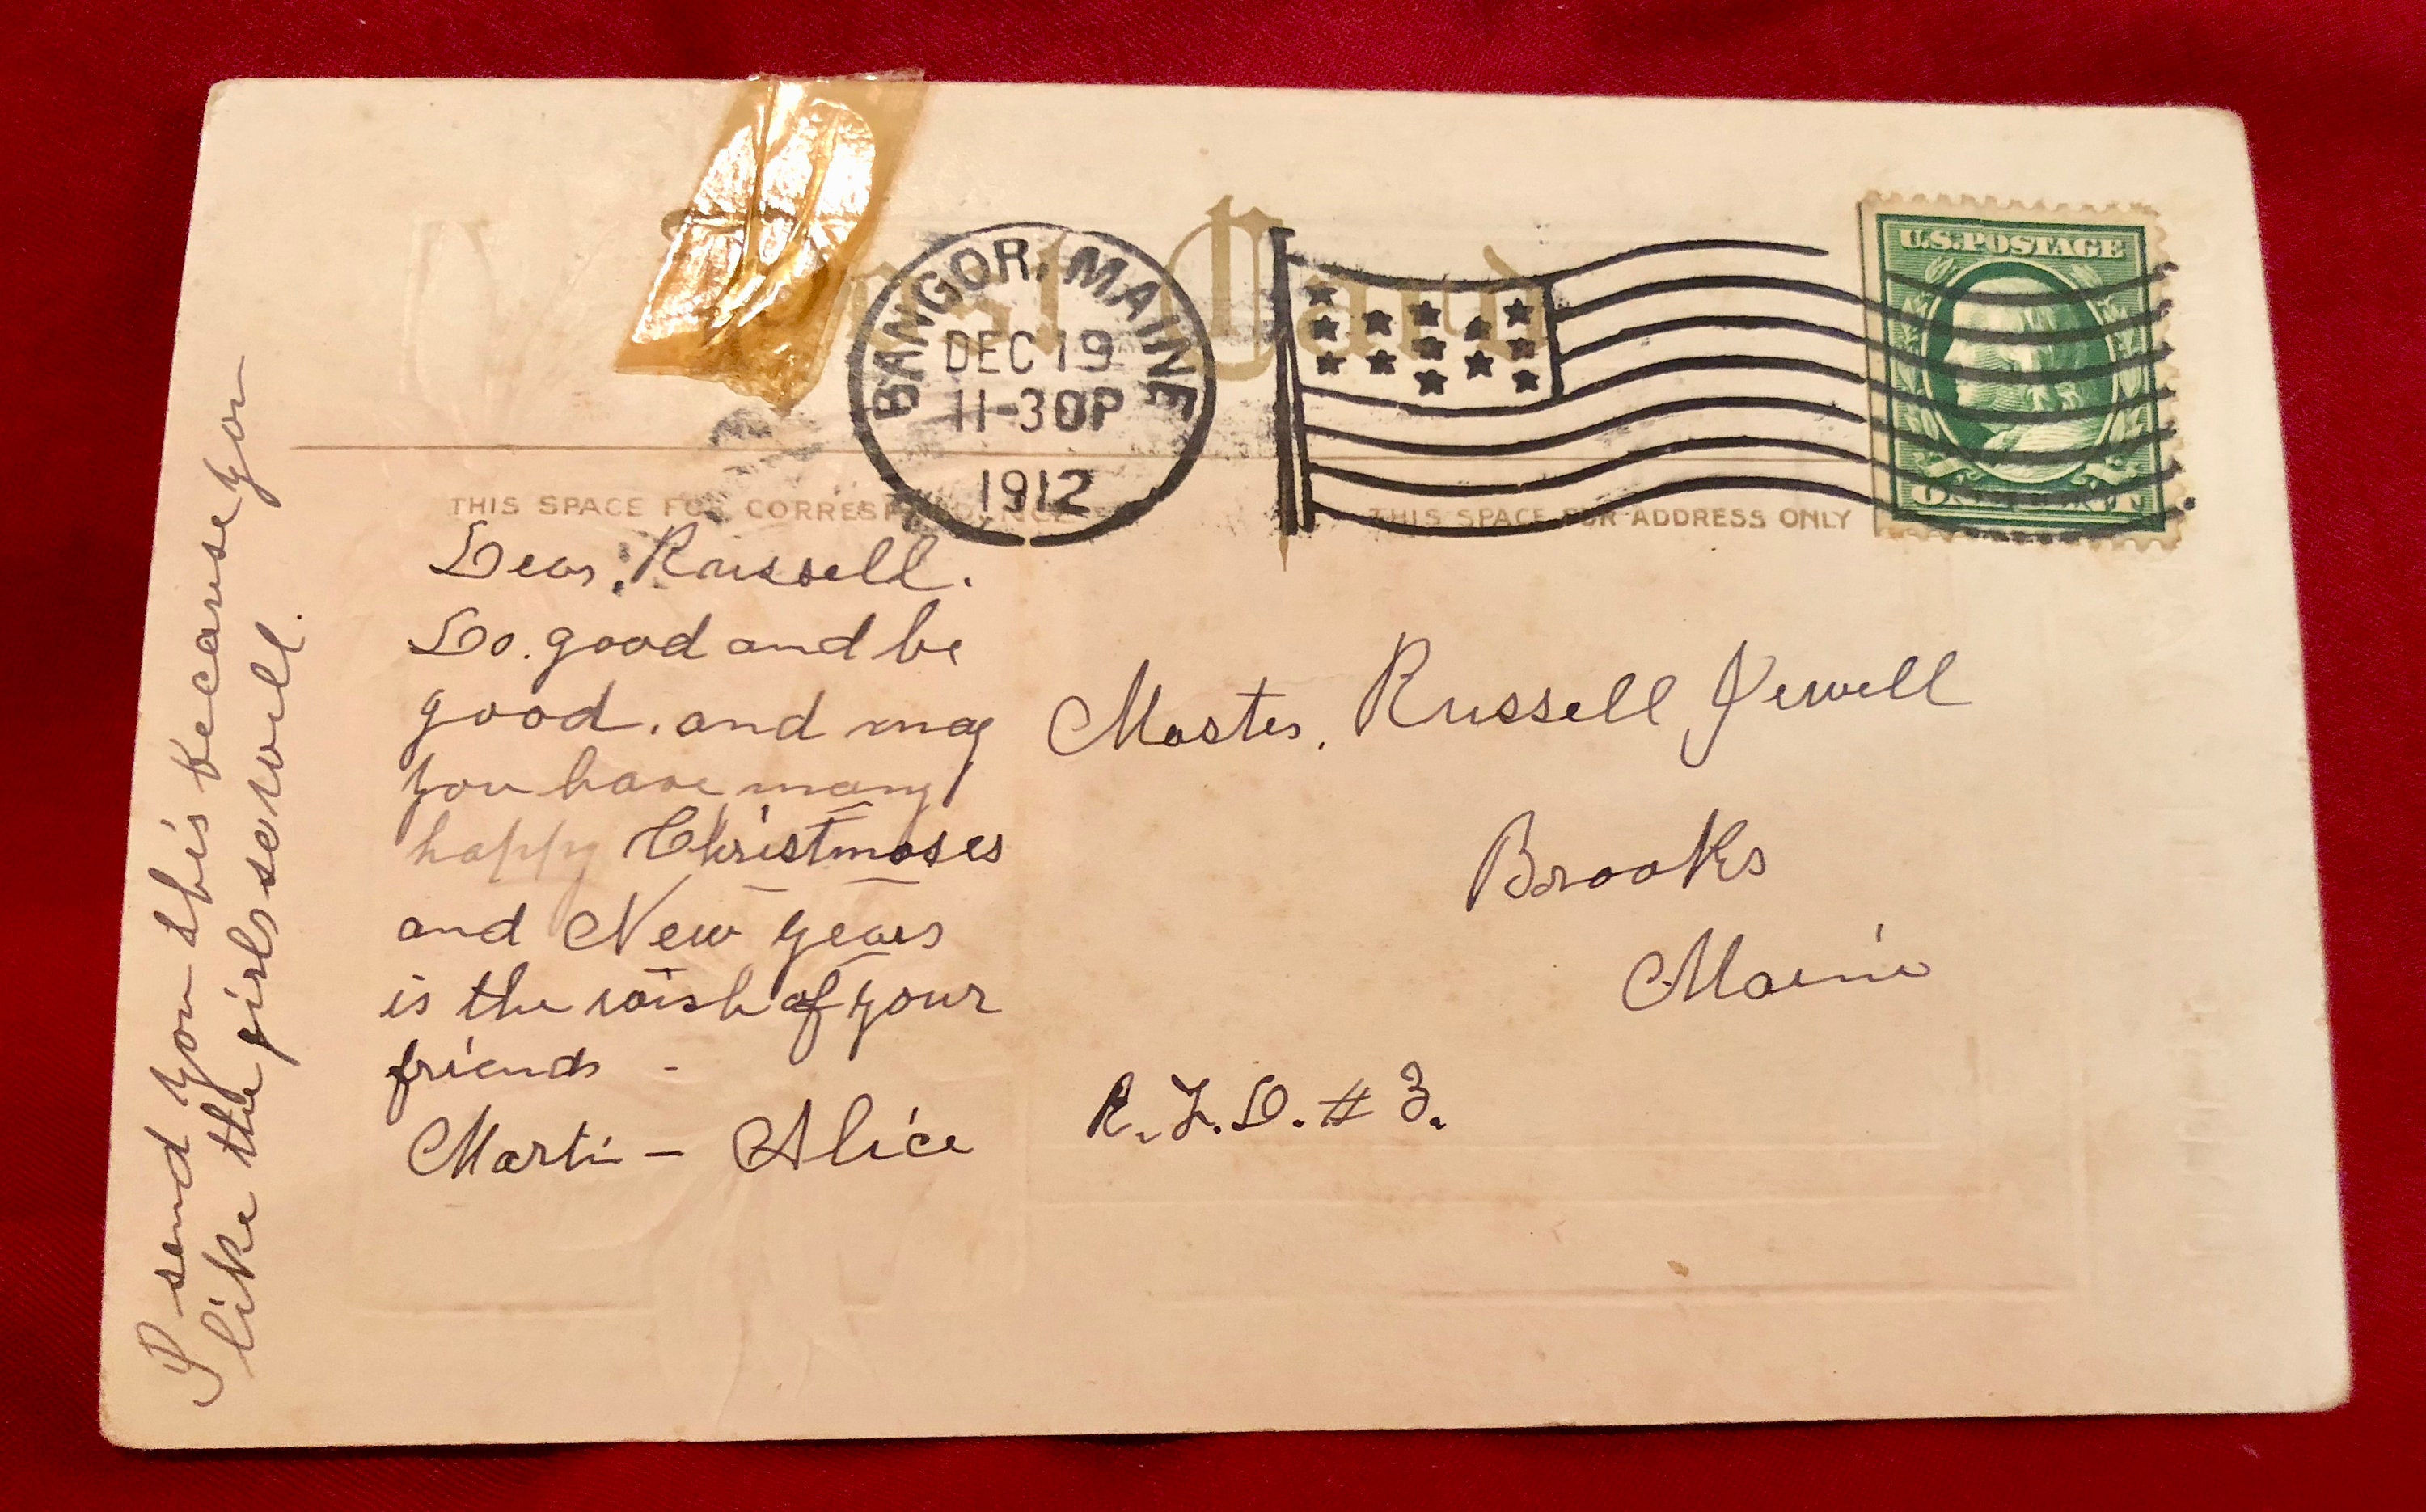 Post Card
BANGOR, MAINE
DEC 19
11-30P
1912
U.S. POSTAGE
ONE CENT
THIS SPACE FOR CORRESPONDENCE
THIS SPACE FOR ADDRESS ONLY
Dear, Russell.
Do. good and be
good. and may
you have many
happy Christmases
and New years
is the wish of your
friends -
Martin - Alice
I send you this because you
like the girls so well.
Master. Russell Jewell
Brooks
Maine
R.F.D. # 3.